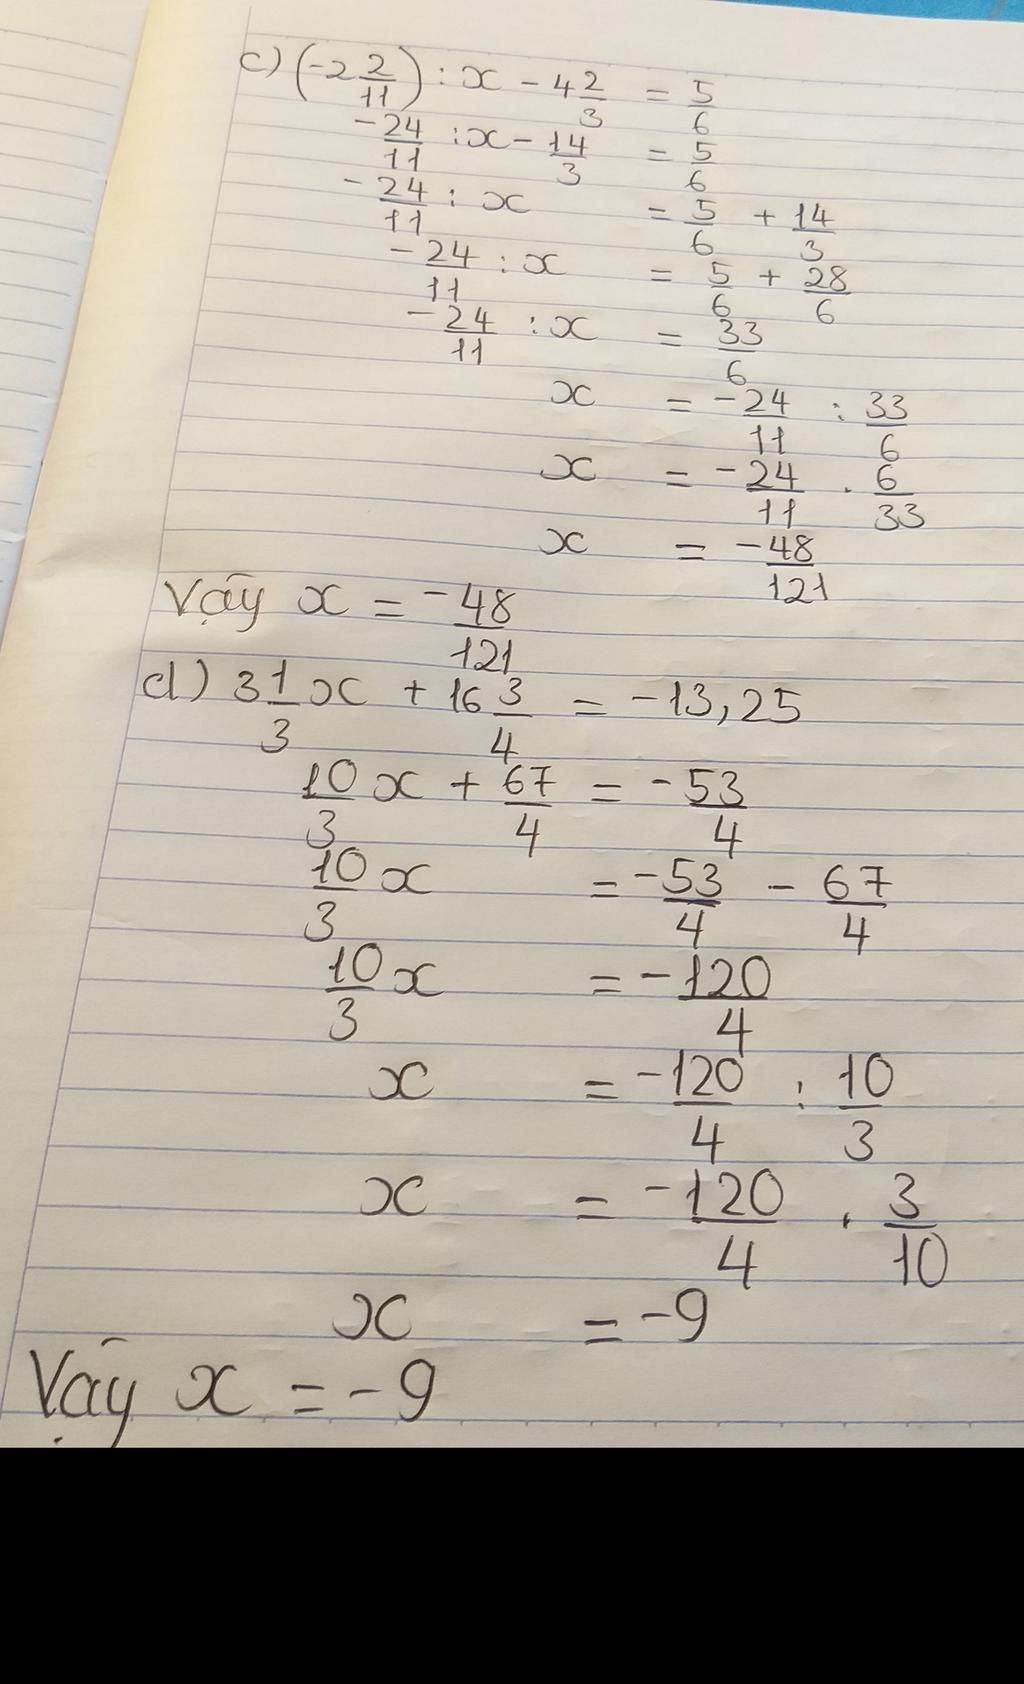 c) (-2 2/11) : x - 4 2/3 = 5/6
-24/11 : x - 14/3 = 5/6
-24/11 : x = 5/6 + 14/3
-24/11 : x = 5/6 + 28/6
-24/11 : x = 33/6
x = -24/11 : 33/6
x = -24/11 . 6/33
x = -48/121
Vậy x = -48/121
d) 3 1/3 x + 16 3/4 = -13,25
10/3 x + 67/4 = -53/4
10/3 x = -53/4 - 67/4
10/3 x = -120/4
x = -120/4 : 10/3
x = -120/4 . 3/10
x = -9
Vậy x = -9